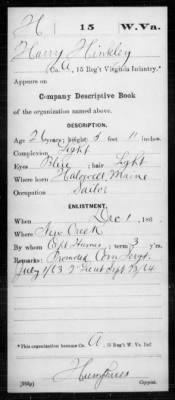 H | 15 | W.Va.
Harry Hinkley
Co. A, 15 Reg't Virginia Infantry.*
Appears on
Company Descriptive Book
of the organization named above.
DESCRIPTION.
Age 26 years; height 5 feet 11 inches.
Complexion Light
Eyes Blue; hair Light
Where born Halowell, Maine
Occupation Sailor
ENLISTMENT.
When Dec 1, 186 .
Where New Creek
By whom Capt Humes; term 3 y'rs.
Remarks: Promoted Com Sergt.
July 1/63 2" Lieut Sept 12/64
*This organization became Co. A, 15 Reg't W. Va. Inf.
Humphries
Copyist.